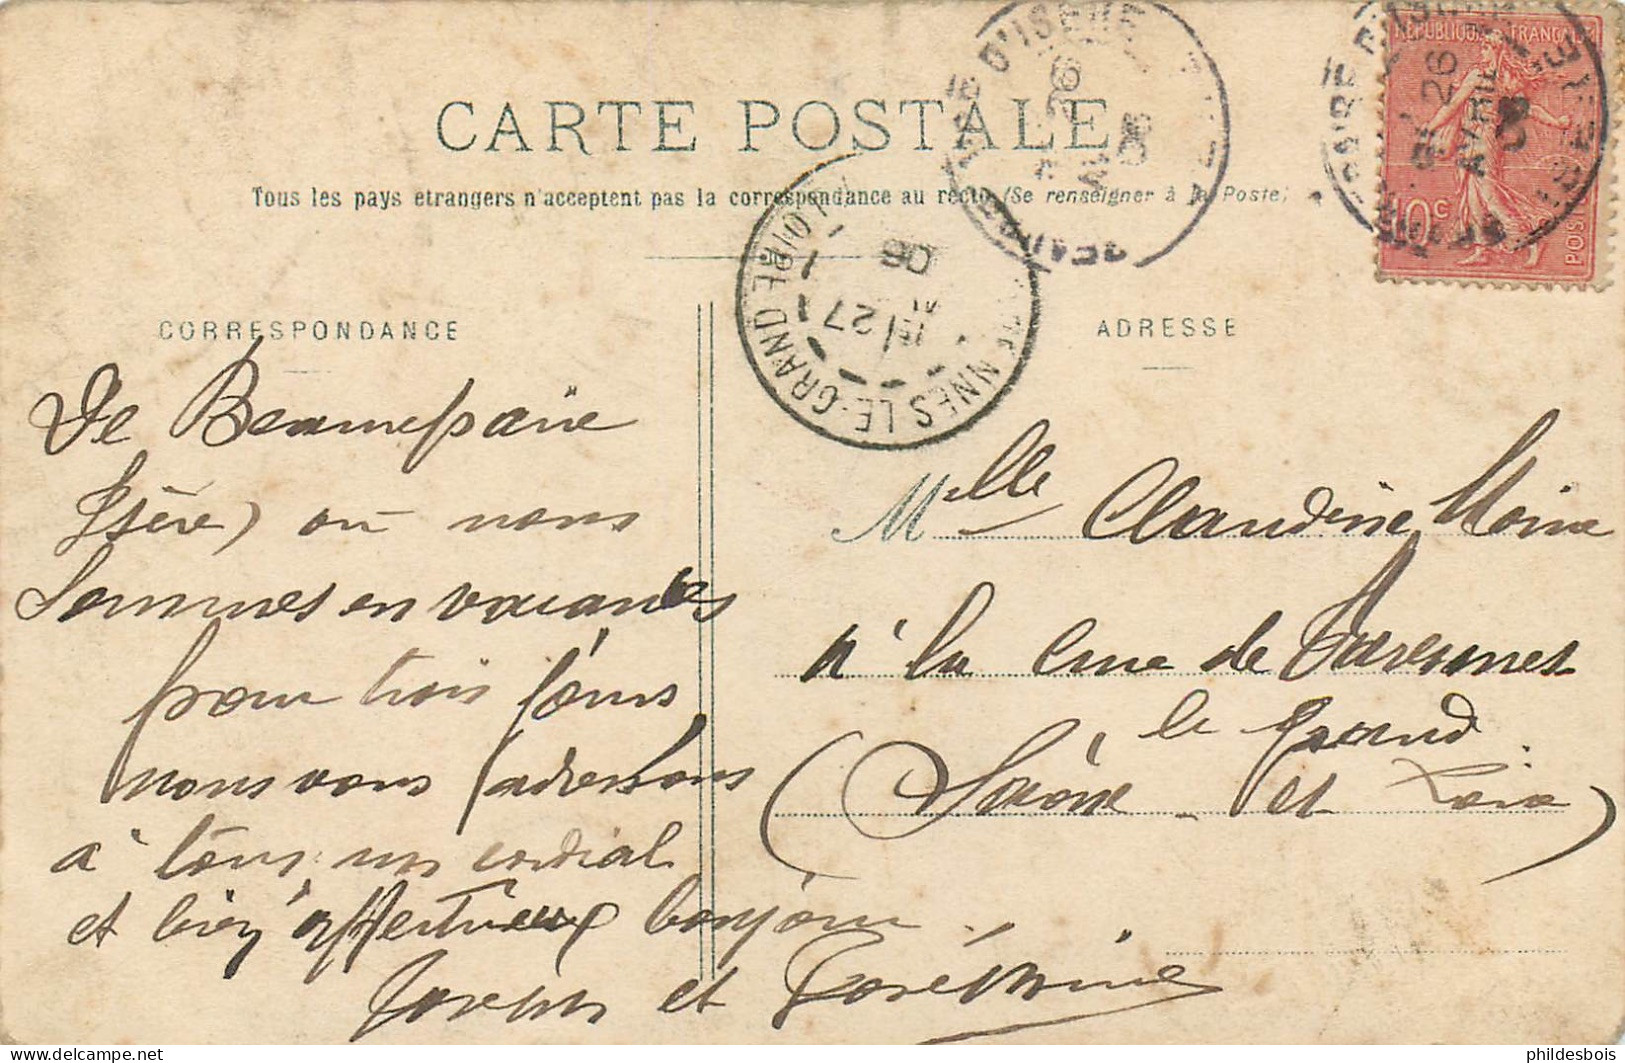 CARTE POSTALE
Tous les pays etrangers n'acceptent pas la correspondance au recto (Se renseigner à la Poste)
REPUBLIQUE FRANÇAISE
10c
POSTES
26
AVRIL
06
D'ISERE
26
06
NNES LE-GRAND
LOIRE
27
06
CORRESPONDANCE
ADRESSE
De Beaurepaire
Isère) où nous
sommes en vacances
pour trois jours
nous vous adressons
à tous un cordial
et bien affectueux bonjour.
et
Mlle Claudine Moine
à la Cure de Varennes
le Grand
(Saône et Loire)
phildesbois